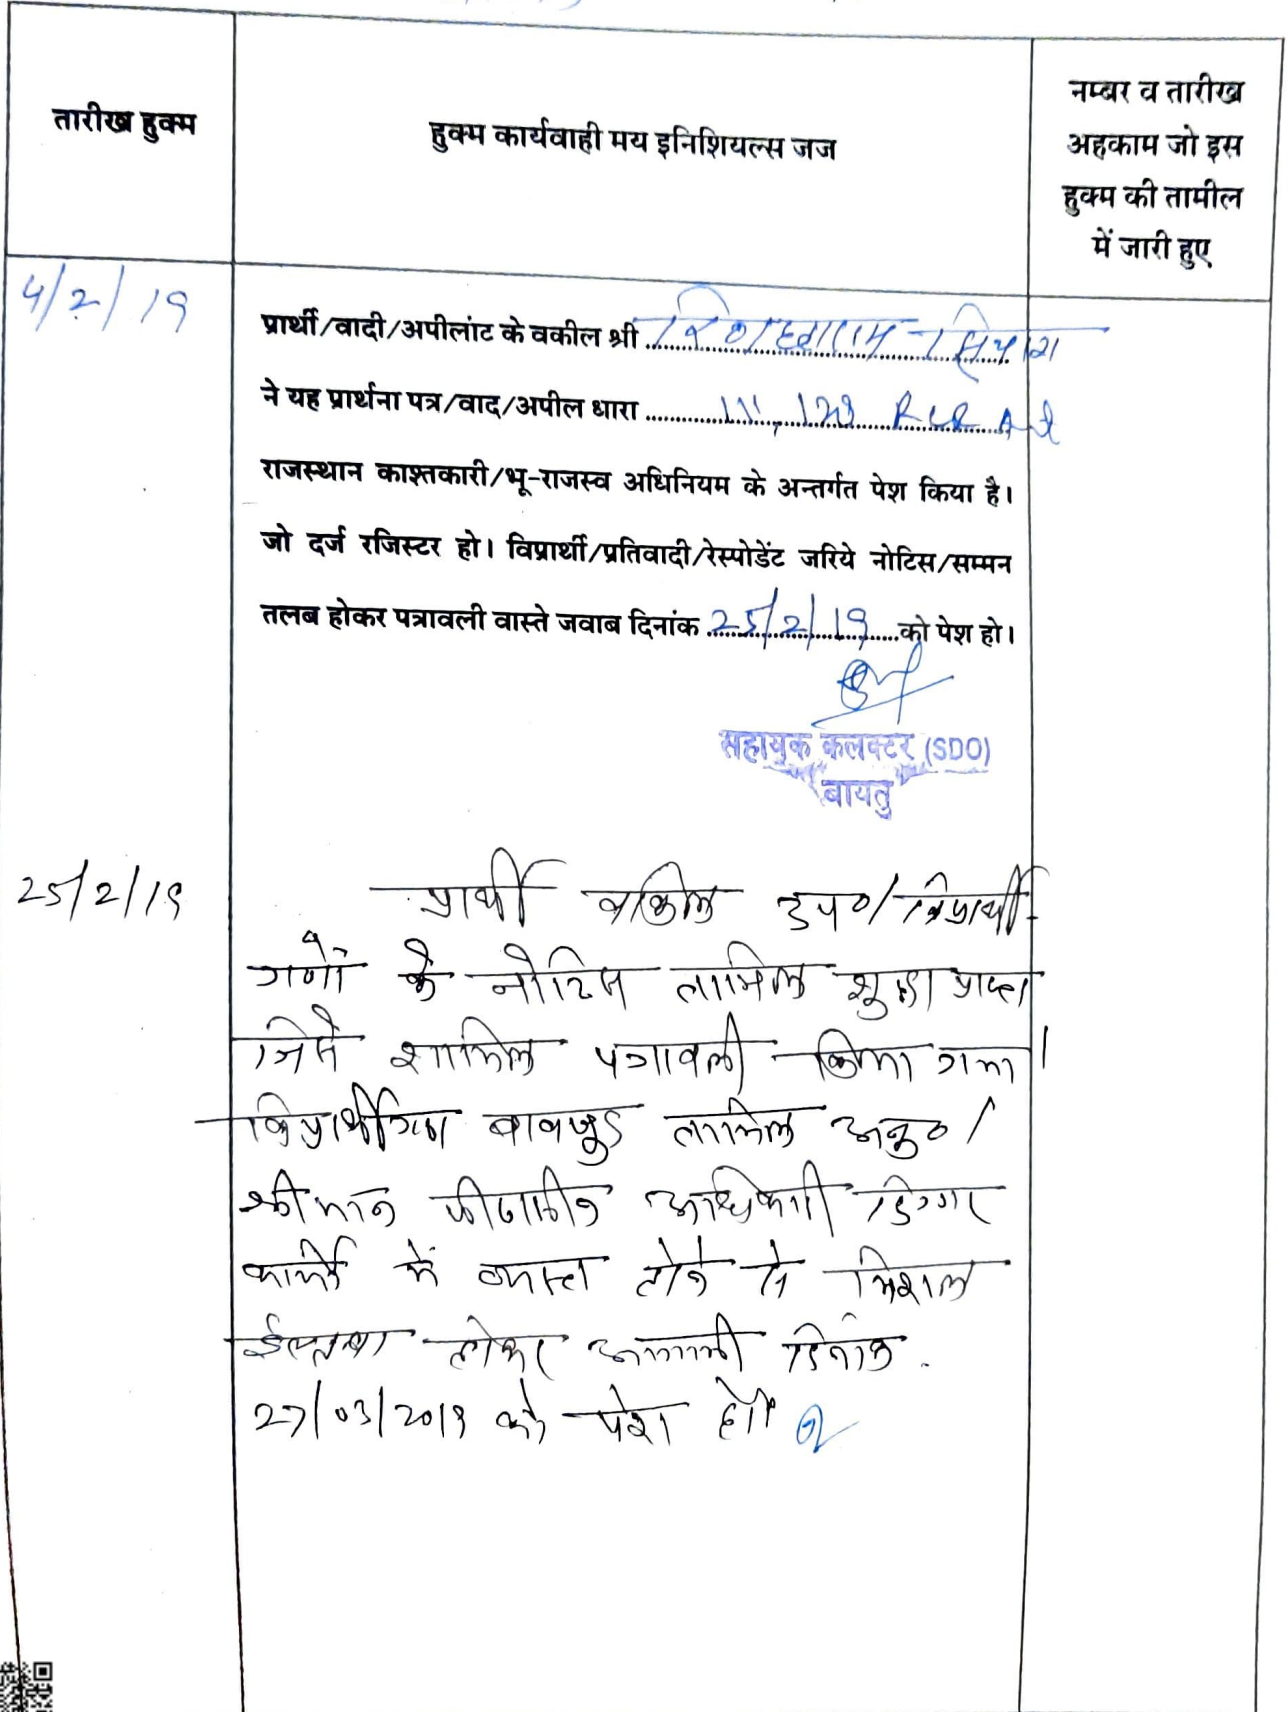 तारीख हुक्म
हुक्म कार्यवाही मय इनिशियल्स जज
नम्बर व तारीख
अहकाम जो इस
हुक्म की तामील
में जारी हुए
4/2/19
प्रार्थी/वादी/अपीलांट के वकील श्री सियाग
ने यह प्रार्थना पत्र/वाद/अपील धारा 111, 128 RLR Act
राजस्थान काश्तकारी/भू-राजस्व अधिनियम के अन्तर्गत पेश किया है।
जो दर्ज रजिस्टर हो। विप्रार्थी/प्रतिवादी/रेस्पोडेंट जरिये नोटिस/सम्मन
तलब होकर पत्रावली वास्ते जवाब दिनांक 25/2/19 को पेश हो।
सहायक कलक्टर (SDO)
बायतु
25/2/19
प्रार्थी वकिल उप०/विप्रार्थी
गणों के नोटिस तामिल शुदा प्राप्त
जिसे शामिल पत्रावली किया गया।
विप्रार्थीगण बावजुद तामिल अनु०/
श्रीमान पीठासीन अधिकारी दिगर
कार्य में व्यस्त होने से मिशल
ईल्तवा होकर आगामी दिनांक
27/03/2019 को पेश हो।